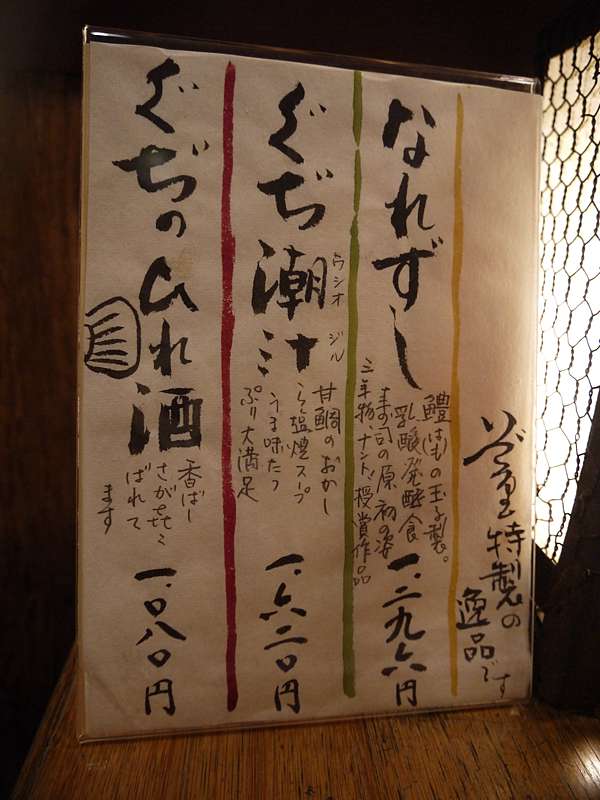 特製の
逸品です
なれずし
鱧(はも)の玉子製。
乳酸発酵食
寿司の原初の姿
三年物、ナント、授賞作品
一、二九六円
ぐぢ潮汁
ウシオ ジル
甘鯛のおかし
ら塩焼スープ
うま味たっ
ぷり大満足
一、六二〇円
ぐぢのひれ酒
香ばし
さが㐂こ
ばれて
ます
一、〇八〇円